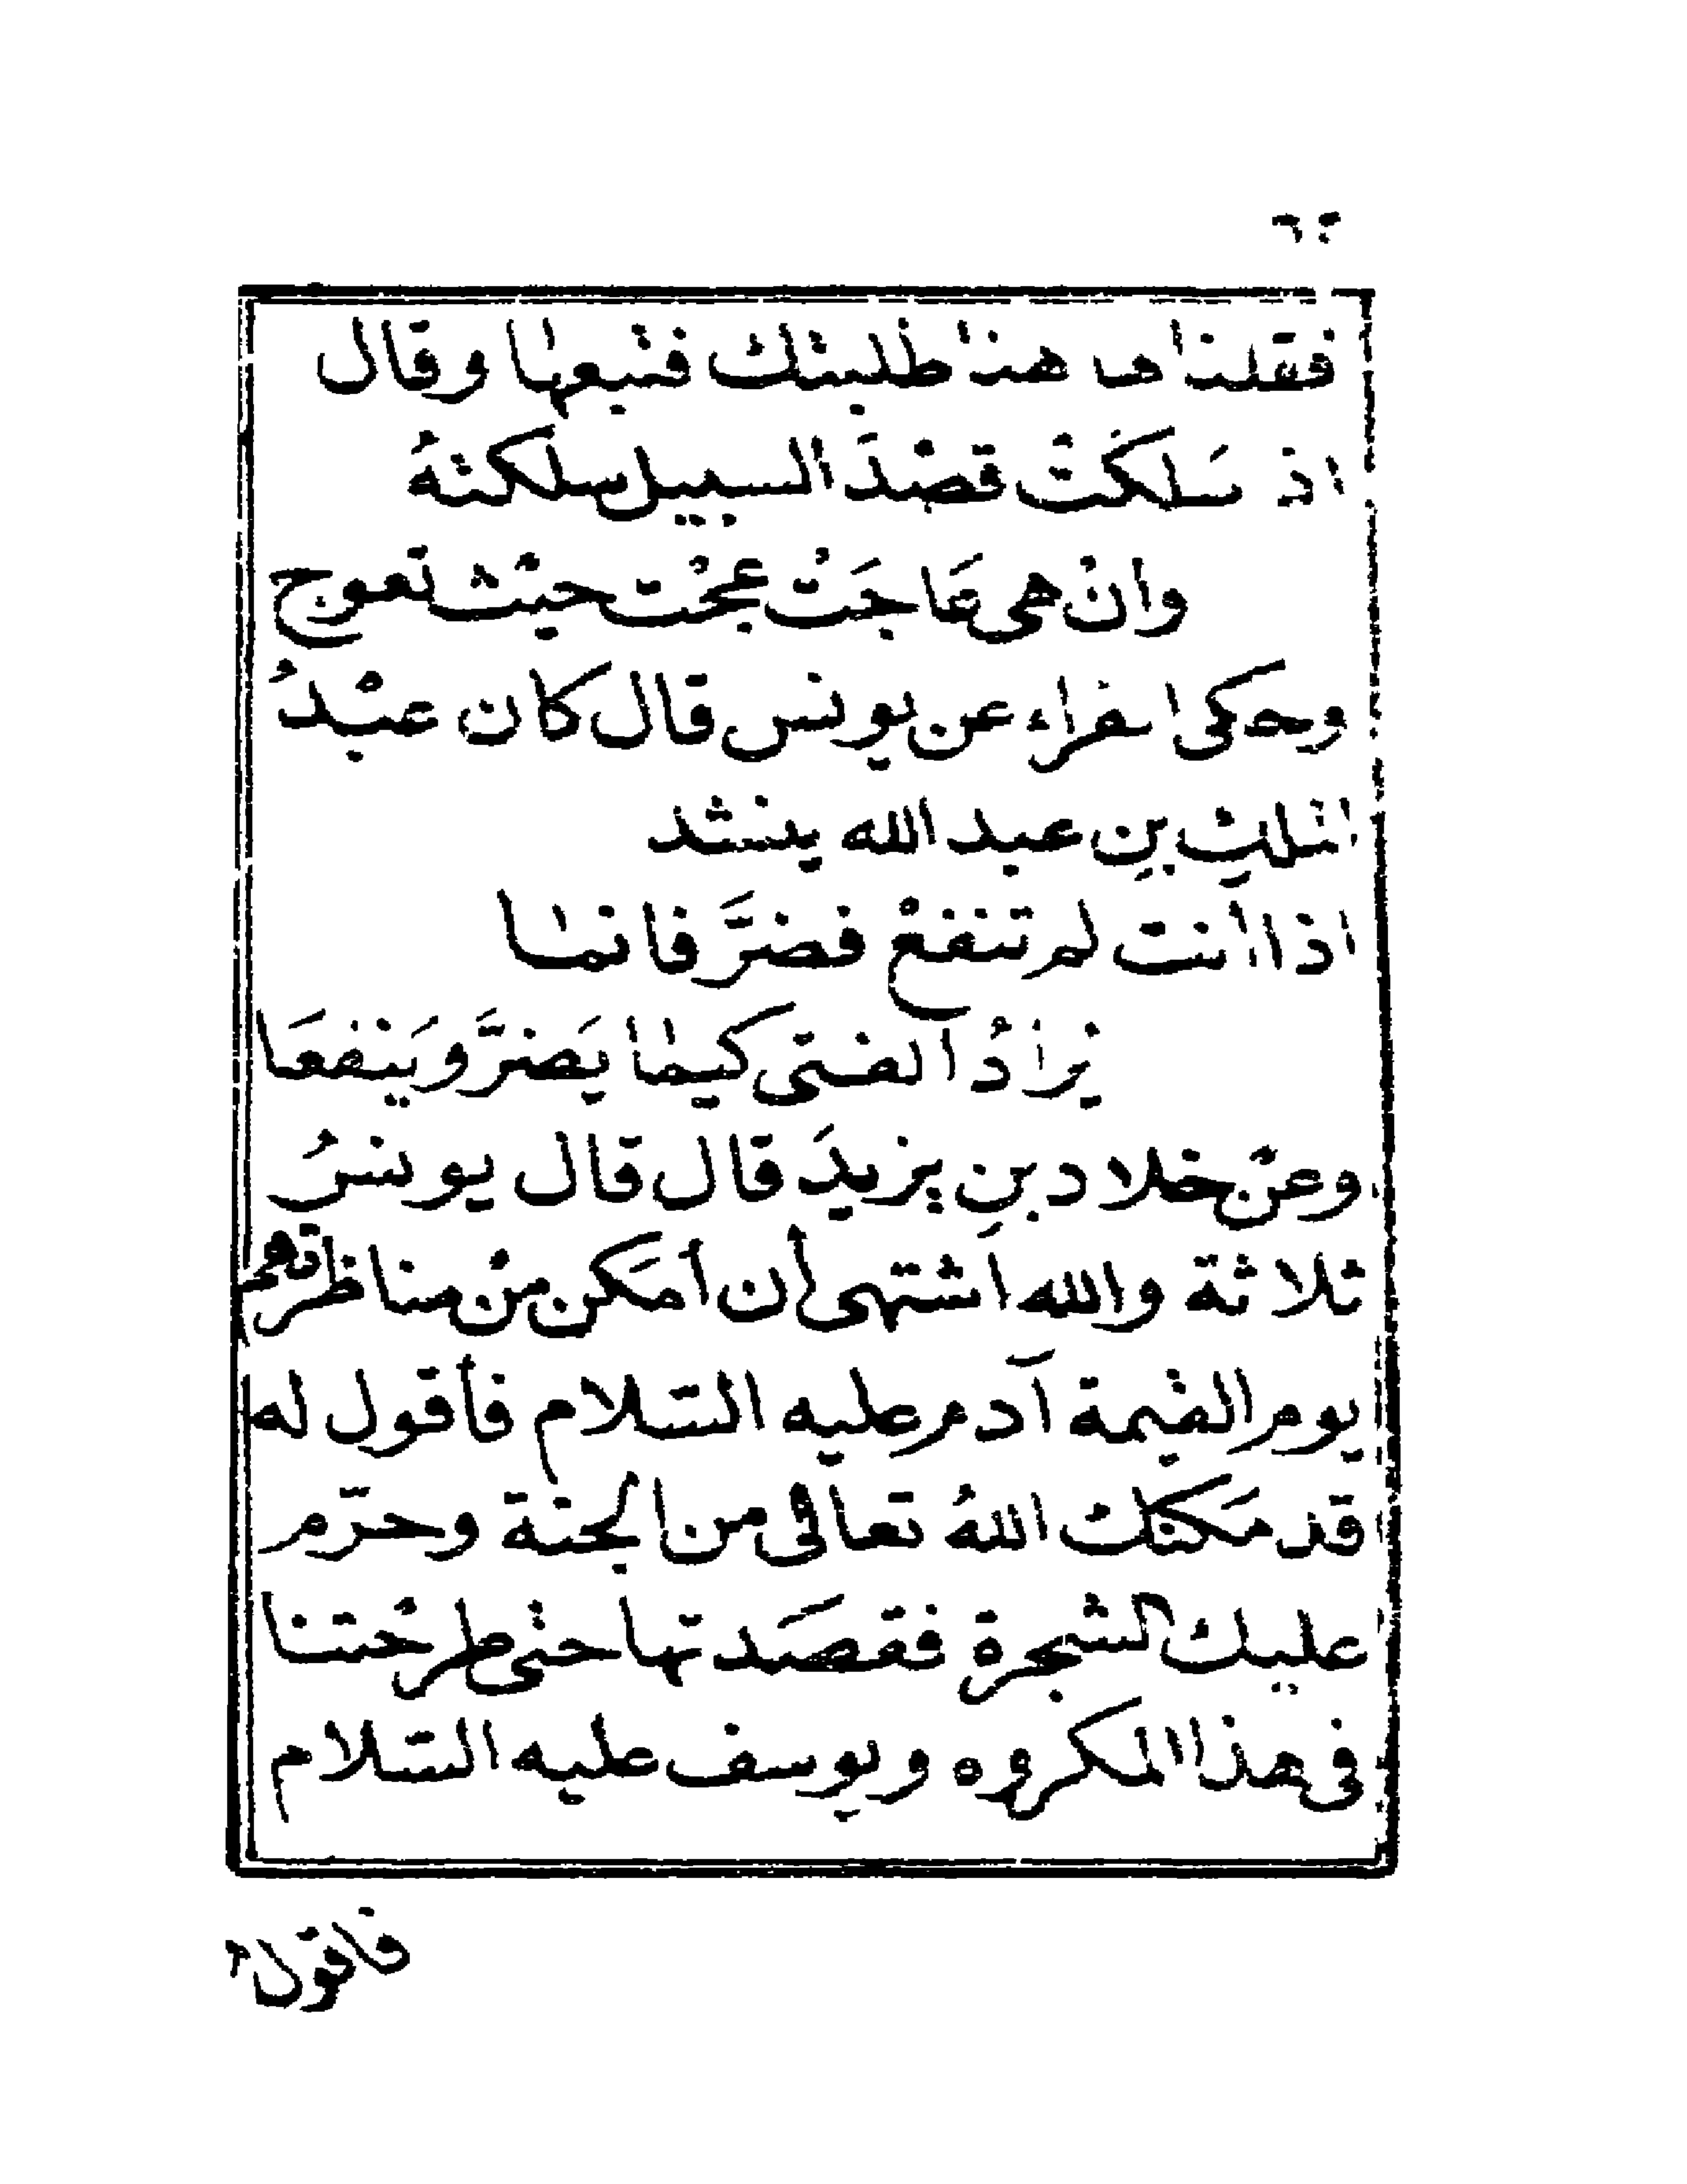 فقلنا ها هنا طلبتك فتبعها وقال
اذ سَلكَتْ قصْدَ السبيل سلكتهُ
وانْ هي عَاجَتْ عجْت حيْث تعوج
وحكى الفراء عن يونس قال كان عبْدُ
الملكِ بنِ عبد الله ينشد
اذا انت لم تنفعْ فضرَّ فانما
يُرادُ الفتى كيما يَضرَّ ويَنْفعَا
وعنْ خلاد بنِ يزيدَ قال قال يونسُ
ثلاثة والله أشتهى أن أمَكن منْ مناظرتهم
يوم القيمة آدم عليه السّلام فأقول له
قد مَكنك اللهُ تعالى من الجنة وحرّم
عليك الشجرة فقصَدتها حتى طرحْتنا
فى هذا المكروه ويوسف عليه السّلام
فاقول